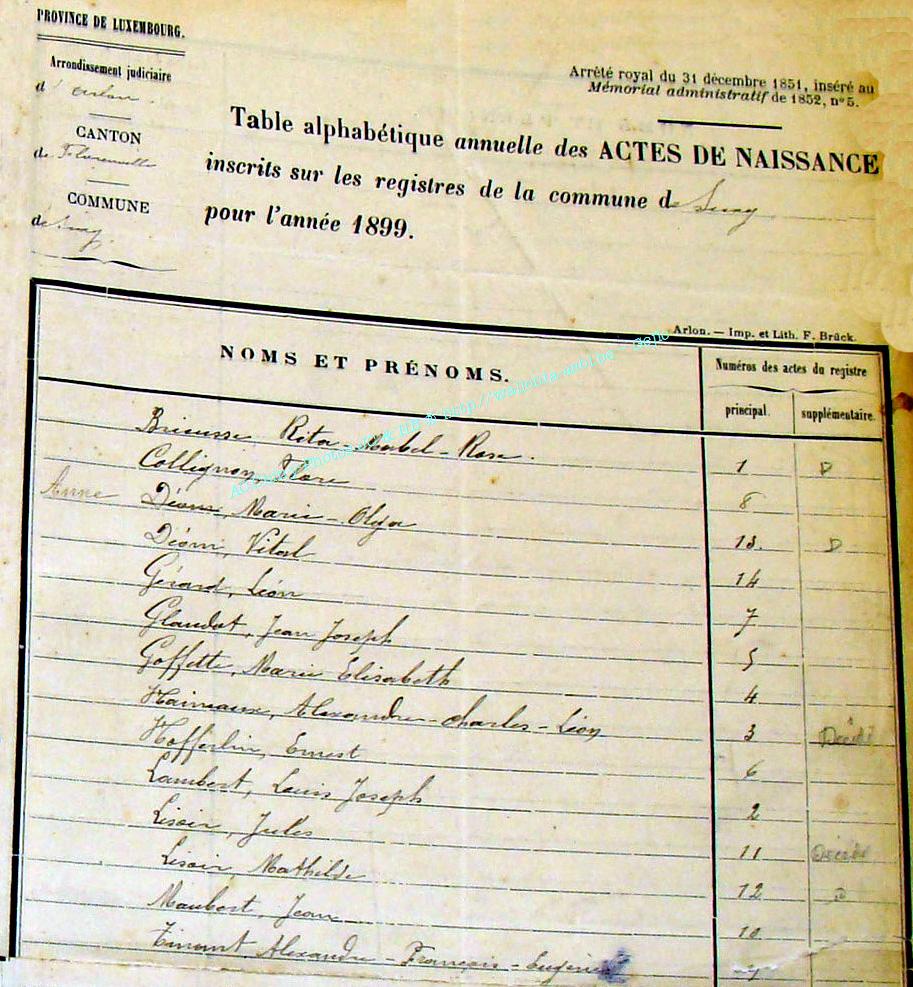 PROVINCE DE LUXEMBOURG.
Arrondissement judiciaire
d'Arlon.
CANTON
de Florenville
COMMUNE
de Suxy
Arrêté royal du 31 décembre 1851, inséré au
Mémorial administratif de 1852, n° 5.
Table alphabétique annuelle des ACTES DE NAISSANCE
inscrits sur les registres de la commune de Suxy
pour l'année 1899.
Arlon. — Imp. et Lith. F. Brück.
NOMS ET PRÉNOMS.
Numéros des actes du registre
principal.
supplémentaire.
Bricusse, Rita-Mabel-Rose. 1 D
Collignon, Flore 8
Anne Dion, Marie-Olga 13. D
Dion, Vital 14
Gérard, Léon 7
Glaudot, Jean Joseph 5
Goffette, Marie Elisabeth 4
Haineaux, Alexandre-Charles-Léon 3 Décédé
Hofferlin, Ernest 6
Lambert, Louis Joseph 2
Lisoir, Jules 11 Décédé
Lisoir, Mathilde 12 D
Maubert, Jean 10
Tinant Alexandre-François-Eugène